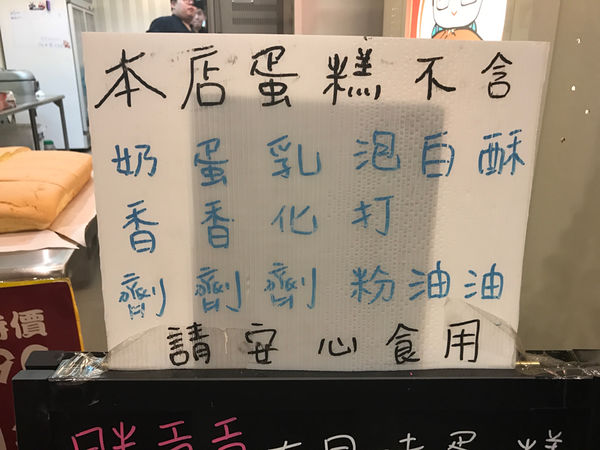 本店蛋糕不含
奶香劑
蛋香劑
乳化劑
泡打粉
白油
酥油
請安心食用
特價